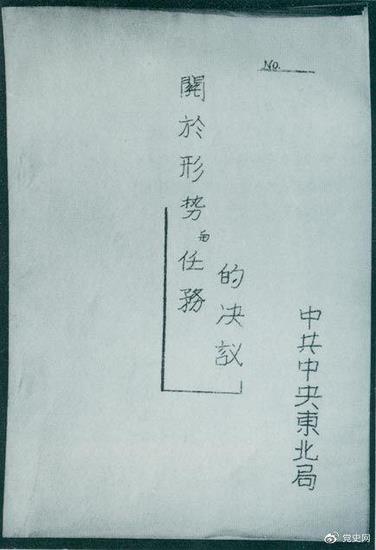 No.
關於形势 任務
的决议
中共中央東北局
党史网